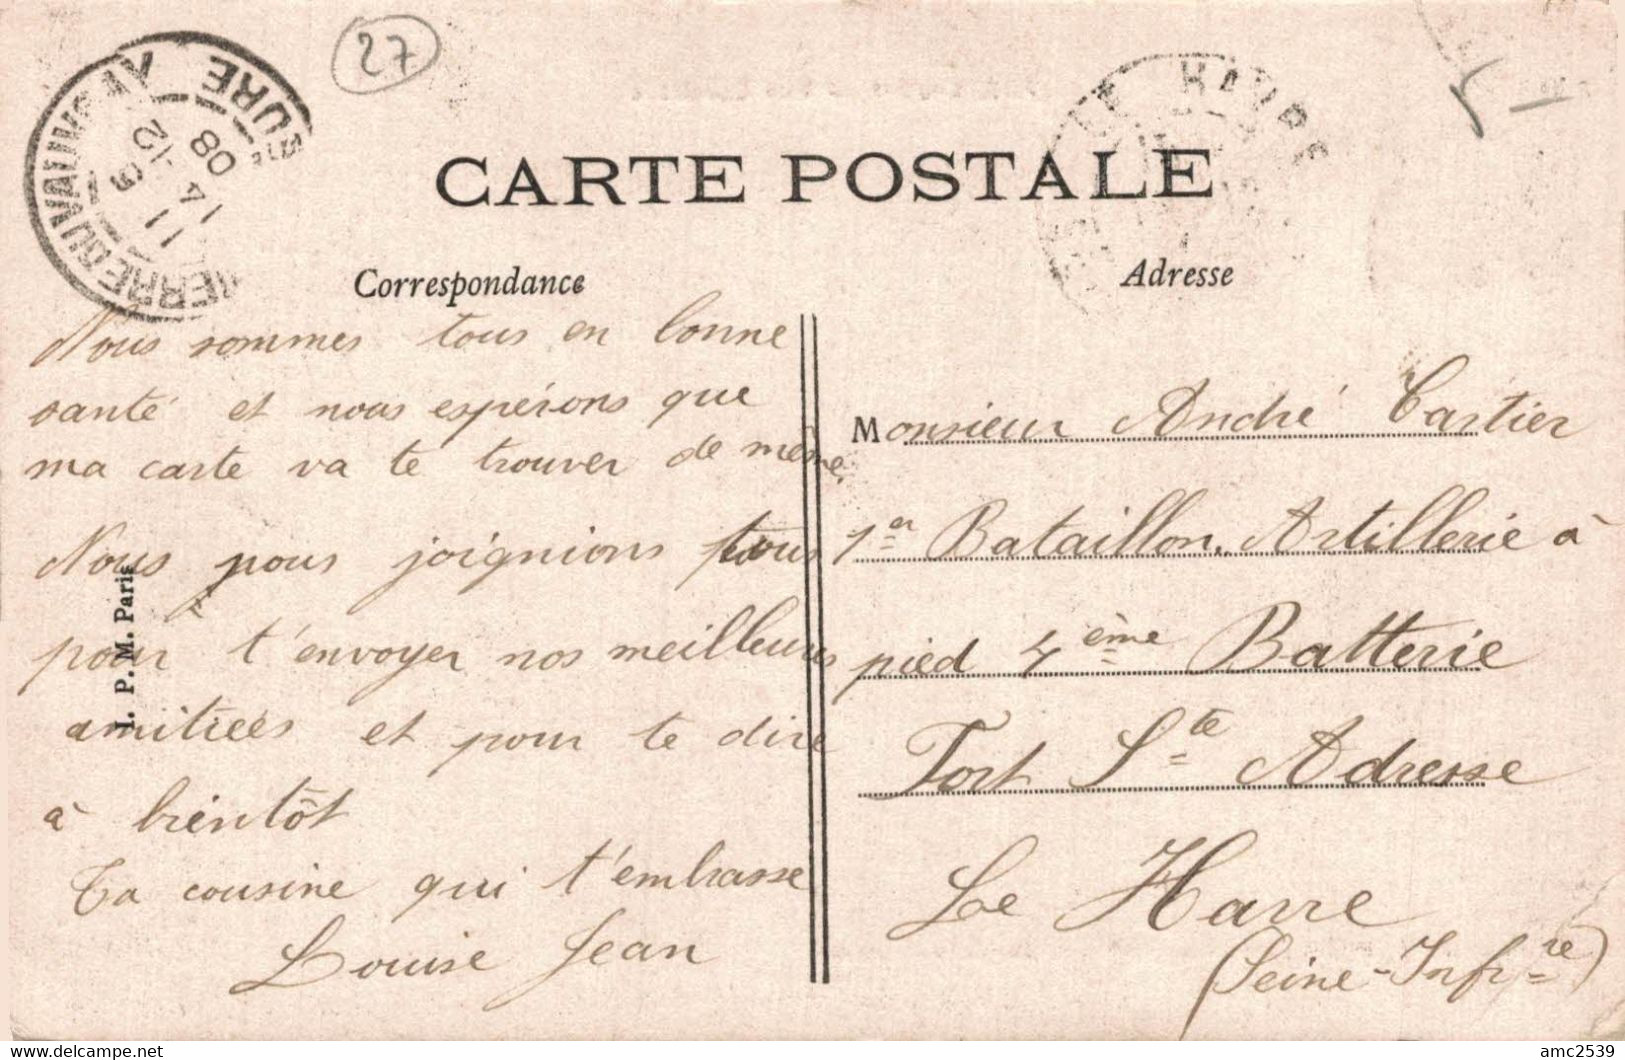 27
5-
EURE
08
LE HAVRE
CARTE POSTALE
Correspondance
Nous sommes tous en bonne
santé et nous espérons que
ma carte va te trouver de même.
Nous nous joignions tous
pour t'envoyer nos meilleures
amitiées et pour te dire
à bientôt
Ta cousine qui t'embrasse
Louise Jean
I. P. M. Paris
Adresse
Monsieur André Cartier
1er Bataillon. Artillerie à
pied 4ème Batterie
Fort Ste Adresse
Le Havre
(Seine-Infre)
delcampe.net
amc2539